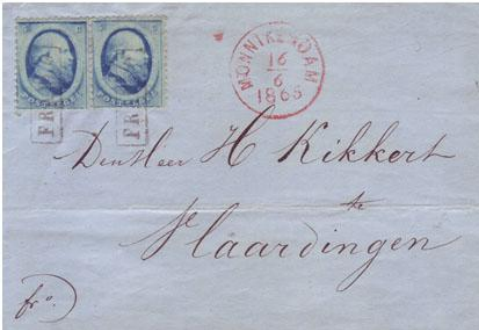 MONNIKENDAM
16
6
1865
FR FR
Den Heer H Kikkert
te
Vlaardingen
fro.